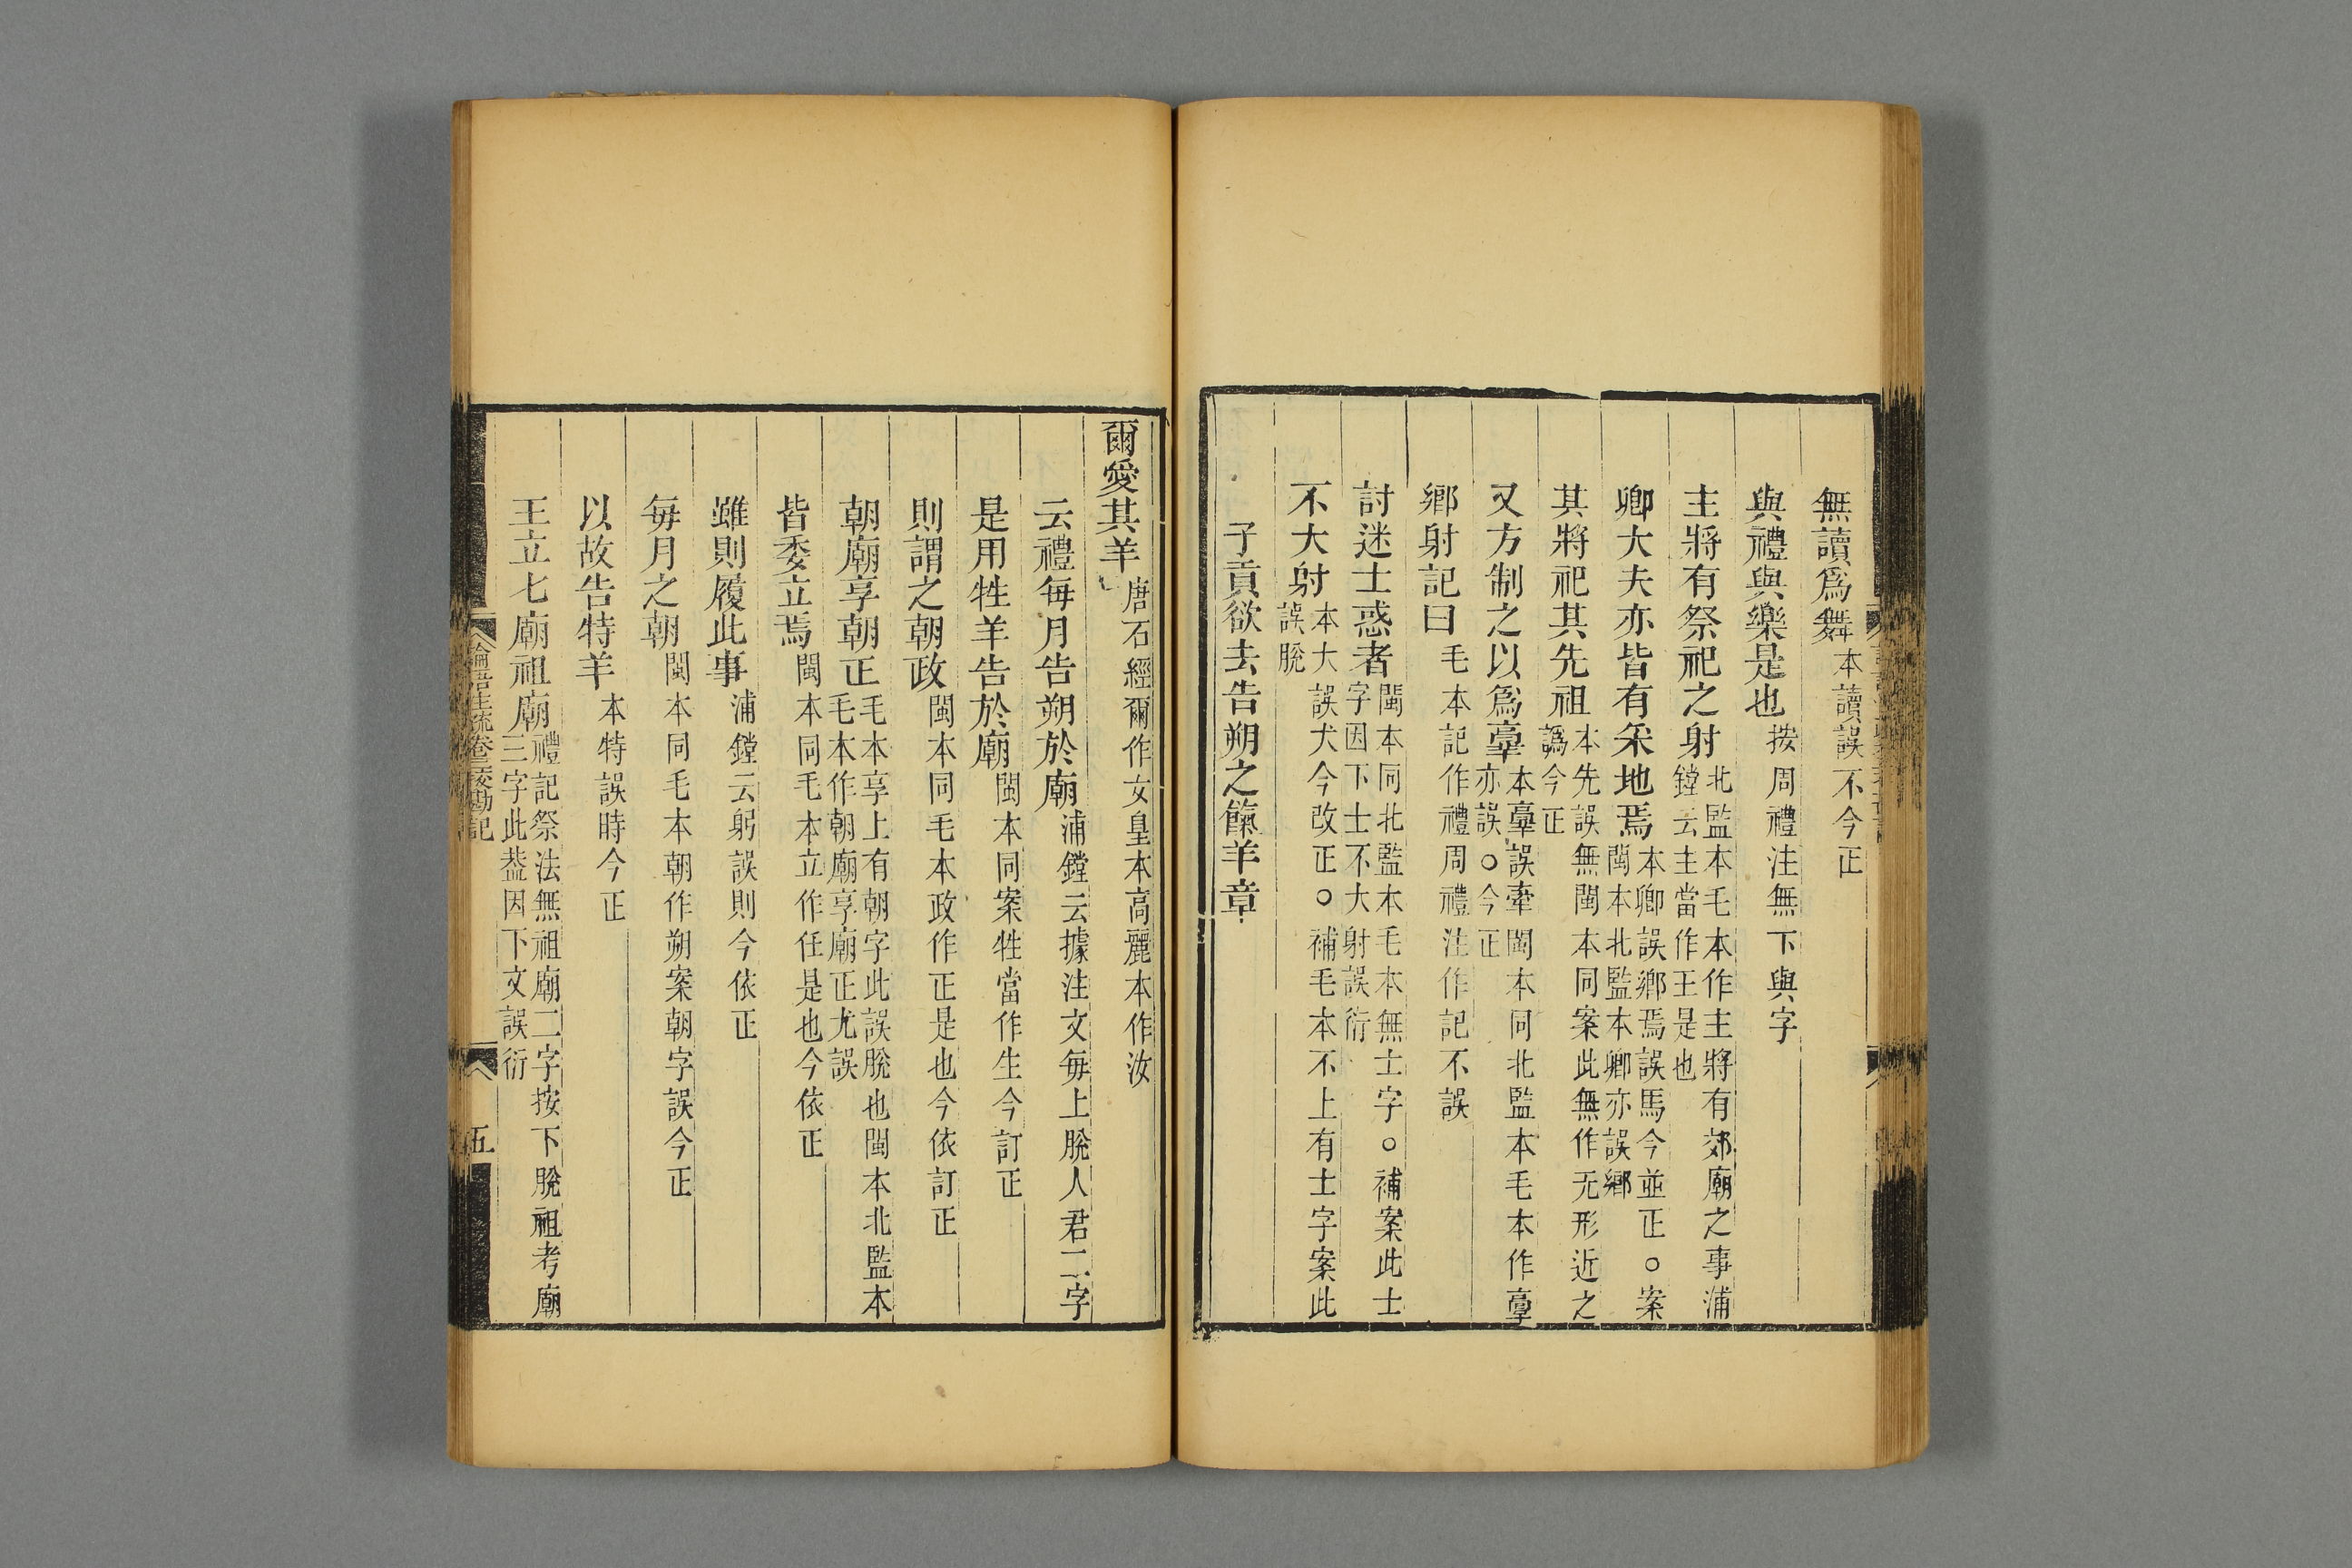 無讀爲舞本讀誤不今正
與禮與樂是也按周禮注無下與字
主將有祭祀之射北監本毛本作主將有郊廟之事浦鏜云主當作王是也
卿大夫亦皆有采地焉本卿誤鄉焉誤馬今並正○案閩本北監本卿亦誤鄉
其將祀其先祖本先誤無閩本同案此無作无形近之譌今正
又方制之以爲臯本臯誤牽閩本同北監本毛本作臯亦誤○今正
鄉射記曰毛本記作禮周禮注作記不誤
討迷士惑者閩本同北監本毛本無士字○補案此士字因下士不大射誤衍
不大射本大誤犬今改正○補毛本不上有士字案此誤脫
子貢欲去告朔之餼羊章
爾愛其羊唐石經爾作女皇本高麗本作汝
云禮每月告朔於廟浦鏜云據注文每上脫人君二字
是用牲羊告於廟閩本同案牲當作生今訂正
則謂之朝政閩本同毛本政作正是也今依訂正
朝廟享朝正毛本享上有朝字此誤脫也閩本北監本毛本作朝廟享廟正尤誤
皆委立焉閩本同毛本立作任是也今依正
雖則履此事浦鏜云躬誤則今依正
每月之朝閩本同毛本朝作朔案朝字誤今正
以故告特羊本特誤時今正
王立七廟祖廟禮記祭法無祖廟二字按下脫祖考廟三字此葢因下文誤衍
論語注疏卷三校勘記
五